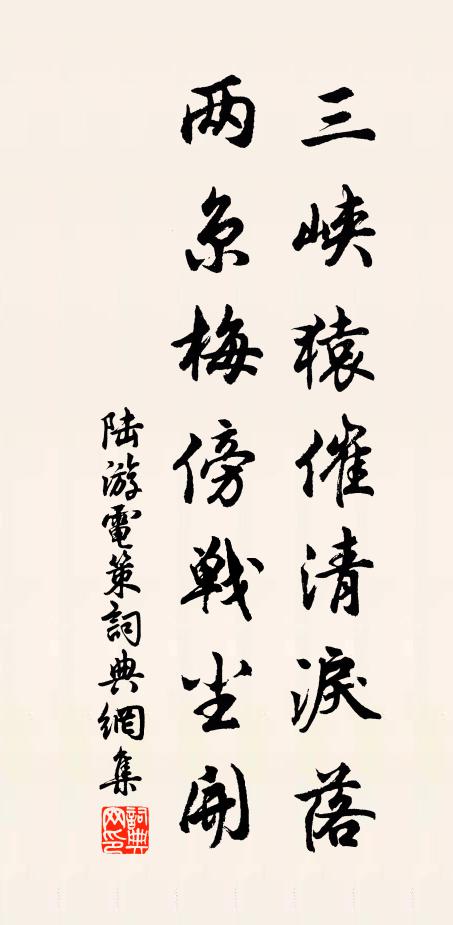 三峡猿催清淚落
两京梅傍戦尘開
陆游電策詞典網集
詞典网印